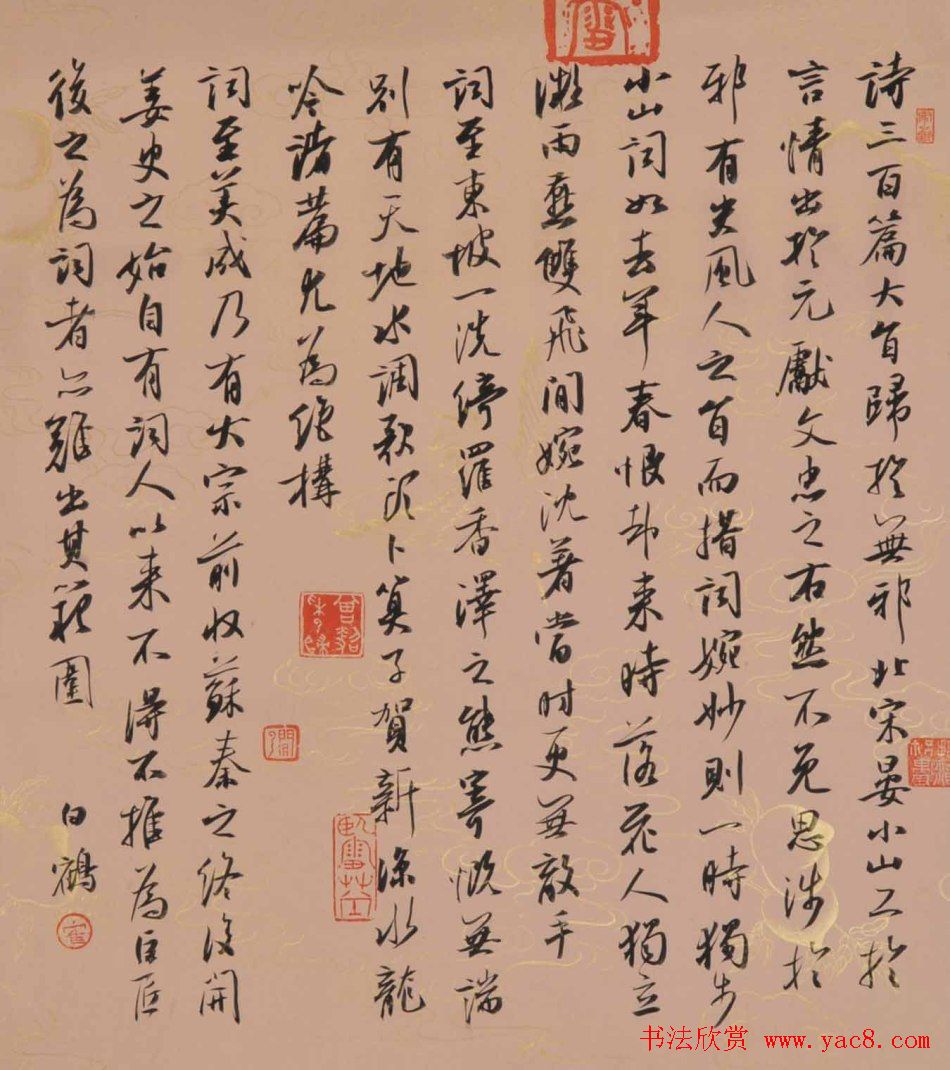 詩三百篇大旨歸於無邪北宋晏小山工於
言情出於元獻文忠之右然不免思涉於
邪有失風人之旨而措詞婉妙則一時獨步
小山詞如去年春恨却來時落花人獨立
微雨燕雙飛閒婉沈著當时更無敵手
詞至東坡一洗綺羅香澤之態寄慨無端
別有天地水調歌頭卜算子賀新涼水龍
吟諸篇尤為絕構
詞至美成乃有大宗前收蘇秦之終後開
姜史之始自有詞人以来不得不推為巨匠
後之為詞者亦難出其範圍
白鶴
书法欣赏 www.yac8.com